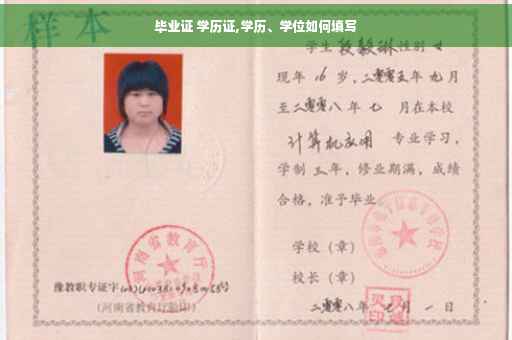 毕业证 学历证,学历、学位如何填写
样本
学生段毅琳性别女
现年16岁,二零零五年九月
至二零零八年七月在本校
计算机应用 专业学习,
学制三年,修业期满,成绩
合格,准予毕业
学校（章）
校长（章）
二零零八年七月一日
河南省教育厅
豫教职专证字
(河南省教育厅验印)